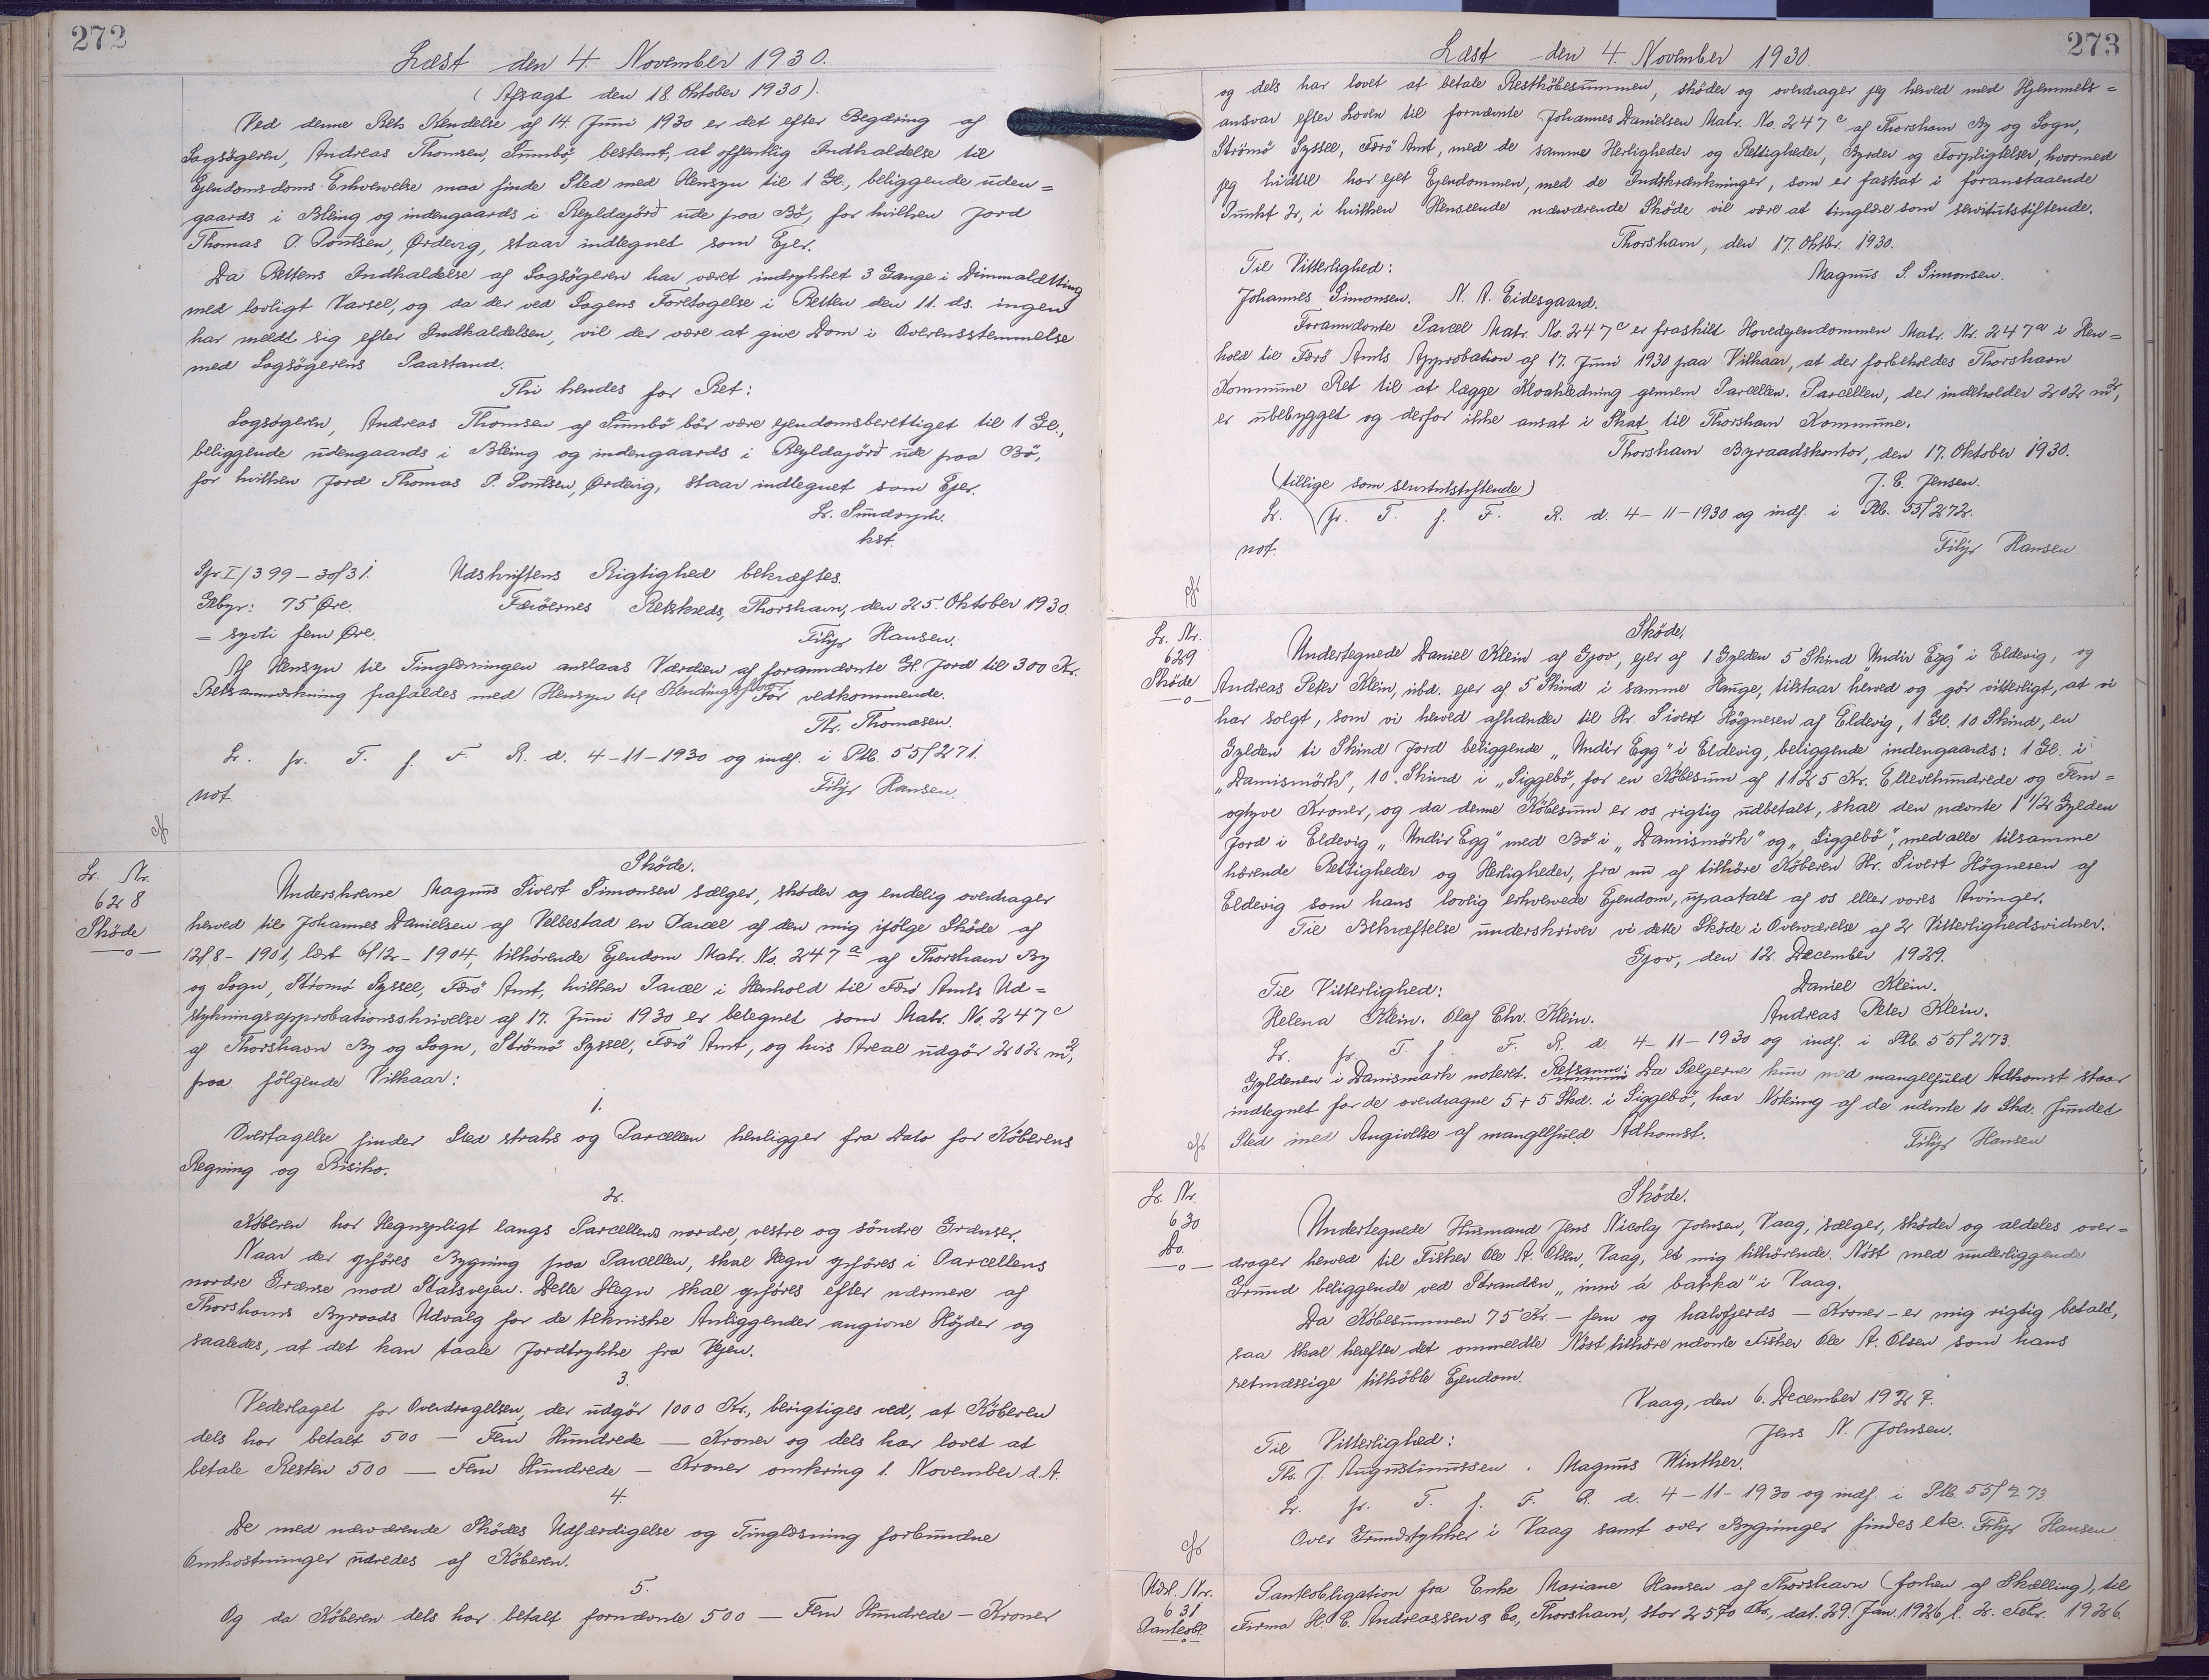 272
Læst den 4. November 1930.
(Afsagt den 18. Oktober 1930).
Ved denne Rets Kendelse af 14. Juni 1930 er det efter Begæring af
Sagsøgeren, Andreas Thomsen, Sumbø, bestemt, at offentlig Indkaldelse til
Ejendomsdoms Erhvervelse maa finde Sted med Hensyn til 1 Gl., beliggende uden=
gaards i Bleing og indengaards i Reyldajørd ude paa Bø, for hvilken Jord
Thomas P. Poulsen, Ørdevig, staar indtegnet som Ejer.
Da Rettens Indkaldelse af Sagsøgeren har været indrykket 3 Gange i Dimmalætting
med lovligt Varsel, og da der ved Sagens Foretagelse i Retten den 11. ds. ingen
har meldt sig efter Indkaldelsen, vil der være at give Dom i Overensstemmelse
med Sagsøgerens Paastand.
Thi kendes for Ret:
Sagsøgeren, Andreas Thomsen af Sumbø bør være ejendomsberettiget til 1 Gl.,
beliggende udengaards i Bleing og indengaards i Reyldajørd ude paa Bø,
for hvilken Jord Thomas P. Poulsen, Ørdevig, staar indtegnet som Ejer.
Sr. Sundorph.
kst.
Gjr I/399 – 30/31. Udskriftens Rigtighed bekræftes.
Gebyr: 75 Øre. Færöernes Retskreds, Thorshavn, den 25. Oktober 1930.
= syvti fem Øre. Filip Hansen.
Af Hensyn til Tinglæsningen anslaas Værdien af forannævnte Gl. Jord til 300 Kr.
Retsanmærkning frafaldes med Hensyn til vedkommende.
Th. Thomasen.
L. fr. T. f. F. R. d. 4–11–1930 og indf. i Ptb. 55/271.
not. Filip Hansen.
cfr
L. Nr.
628
Skøde
—o—
Skøde.
Underskrevne Magnus Sivert Simonsen sælger, skøder og endelig overdrager
herved til Johannes Danielsen af Velbestad en Parcel af den mig ifølge Skøde af
12/8 – 1901, læst 6/12 – 1904, tilhørende Ejendom Matr. No. 247 a af Thorshavn By
og Sogn, Strømø Syssel, Færø Amt, hvilken Parcel i Henhold til Færø Amts Ud=
stykningsapprobationsskrivelse af 17. Juni 1930 er betegnet som Matr. No. 247 c
af Thorshavn By og Sogn, Strømø Syssel, Færø Amt, og hvis Areal udgør 202 m²,
paa følgende Vilkaar:
1.
Overtagelse finder Sted straks og Parcellen henligger fra Dato for Køberens
Regning og Risiko.
2.
Køberen har Hegnspligt langs Parcellens nordre, vestre og søndre Grænser.
Naar der opføres Bygning paa Parcellen, skal Hegn opføres i Parcellens
nordre Grænse mod Statsvejen. Dette Hegn skal opføres efter nærmere af
Thorshavns Byraads Udvalg for de tekniske Anliggender angivne Højder og
saaledes, at det kan taale Jordtrykke fra Vejen.
3.
Vederlaget for Overdragelsen, der udgør 1000 Kr., berigtiges ved, at Køberen
dels har betalt 500 — Fem Hundrede — Kroner og dels har lovet at
betale Resten 500 — Fem Hundrede — Kroner omkring 1. November d. A.
4.
De med nærværende Skødes Udfærdigelse og Tinglæsning forbundne
Omkostninger udredes af Køberen.
5.
Og da Køberen dels har betalt fornævnte 500 — Fem Hundrede — Kroner
273
Læst den 4. November 1930.
og dels har lovet at betale Restkøbesummen, skøder og overdrager jeg herved med Hjemmels=
ansvar efter Loven til fornævnte Johannes Danielsen Matr. No. 247 c af Thorshavn By og Sogn,
Strømø Syssel, Færø Amt, med de samme Herligheder og Rettigheder, Byrder og Forpligtelser, hvormed
jeg hidtil har ejet Ejendommen, med de Indskrænkninger, som er fastsat i foranstaaende
Punkt 2, i hvilken Henseende nærværende Skøde vil være at tinglæse som servitutstiftende.
Thorshavn, den 17. Oktbr. 1930.
Til Vitterlighed: Magnus S. Simonsen.
Johannes Simonsen. N. A. Eidesgaard.
Forannævnte Parcel Matr. No. 247 c er fraskilt Hovedejendommen Matr. Nr. 247 a i Hen=
hold til Færø Amts Approbation af 17. Juni 1930 paa Vilkaar, at der forbeholdes Thorshavn
Kommune Ret til at lægge Kloakledning gennem Parcellen. Parcellen, der indeholder 202 m²,
er ubebygget og derfor ikke ansat i Skat til Thorshavn Kommune.
Thorshavn Byraadskontor, den 17. Oktober 1930.
(tillige som servitutstiftende) J. C. Jensen.
L. fr. T. f. F. R. d. 4–11–1930 og indf. i Ptb. 55/272.
not. Filip Hansen
cfr
L. Nr.
629
Skøde
—o—
Skøde.
Undertegnede Daniel Klein af Gjov, ejer af 1 Gylden 5 Skind "Undir Egg" i Eldevig, og
Andreas Peter Klein, ibd. ejer af 5 Skind i samme Hauge, tilstaar herved og gør vitterligt, at vi
har solgt, som vi herved afhænder til Hr. Sivert Høgnesen af Eldevig, 1 Gl. 10 Skind, en
Gylden ti Skind Jord beliggende "Undir Egg" i Eldevig, beliggende indengaards: 1 Gl. i
"Damismørk", 10 Skind i "Siggebø", for en Købesum af 1125 Kr. Ellevehundrede og Fem=
ogtyve Kroner, og da denne Købesum er os rigtig udbetalt, skal den nævnte 1 1/2 Gylden
Jord i Eldevig "Undir Egg" med Bø i "Damismørk" og "Siggebø", med alle tilsamme
hørende Rettigheder og Herligheder, fra nu af tilhøre Køberen Hr. Sivert Høgnesen af
Eldevig som hans lovlig erhvervede Ejendom, upaatalt af os eller vores Arvinger.
Til Bekræftelse underskriver vi dette Skøde i Overværelse af 2 Vitterlighedsvidner.
Gjov, den 12. December 1929.
Til Vitterlighed: Daniel Klein.
Helena Klein. Olaf Chr. Klein. Andreas Peter Klein.
L. fr. T. f. F. R. d. 4–11–1930 og indf. i Ptb. 55/273.
Gyldenen i Damismark noteret. Retsanm: Da Sælgerne kun med mangelfuld Adkomst staar
indtegnet for de overdragne 5 + 5 Skd. i Siggebø, har Notering af de nævnte 10 Skd. fundet
cfr Sted med Angivelse af mangelfuld Adkomst. Filip Hansen
L. Nr.
630
Do.
—o—
Skøde.
Undertegnede Husmand Jens Nicolaj Joensen, Vaag, sælger, skøder og aldeles over=
drager herved til Fisker Ole A. Olsen, Vaag, et mig tilhørende Nøst med underliggende
Grund beliggende ved Stranden "inni á bakka" i Vaag.
Da Købesummen 75 Kr. – fem og halvfjerds — Kroner – er mig rigtig betalt,
saa skal herefter det ommeldte Nøst tilhøre nævnte Fisker Ole A. Olsen som hans
retmæssige tilkøbte Ejendom.
Vaag, den 6. December 1927.
Til Vitterlighed: Jens N. Joensen.
Th. J. Augustinussen. Magnus Winther.
L. fr. T. f. F. R. d. 4–11–1930 og indf. i Ptb. 55/273
cfr Over Grundstykker i Vaag samt over Bygninger findes etc. Filip Hansen
Udsl. Nr.
631
Panteobl.
—o—
Panteobligation fra Enke Mariane Hansen af Thorshavn (forhen af Skælling), til
Firma H. C. Andreassen & Co., Thorshavn, stor 2570 Kr., dat. 29. Jan. 1926, l. 2. Febr. 1926.